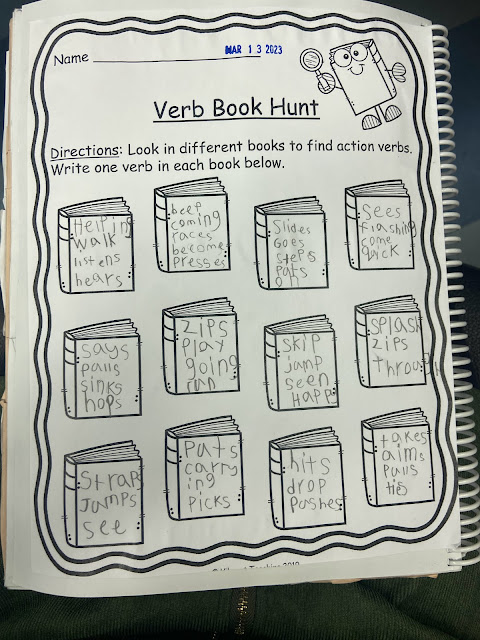 Name
MAR 13 2023
Verb Book Hunt
Directions: Look in different books to find action verbs.
Write one verb in each book below.
Helping
walk
listens
hears
beep
coming
races
become
presses
Slides
Goes
steps
pats
on
Sees
flashing
come
quick
says
palls
sinks
hops
zips
play
going
run
skip
jamp
seen
HAPP
SPLASH
zips
through
Strap
Jamps
see
Pats
carry
ing
picks
hits
drop
Pashes
takes
aims
ties